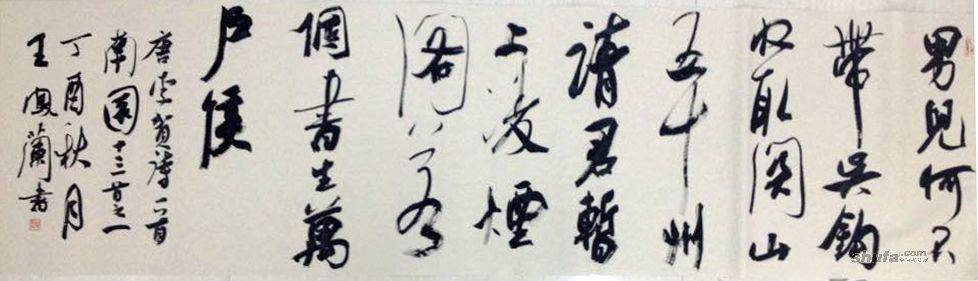 男兒何不
帶吳鉤
收取關山
五十州
請君暫
上凌煙
閣若
個書生萬
戶侯
唐李賀詩一首
南園十三首之一
丁酉秋月
王鳳蘭書
shufa.com